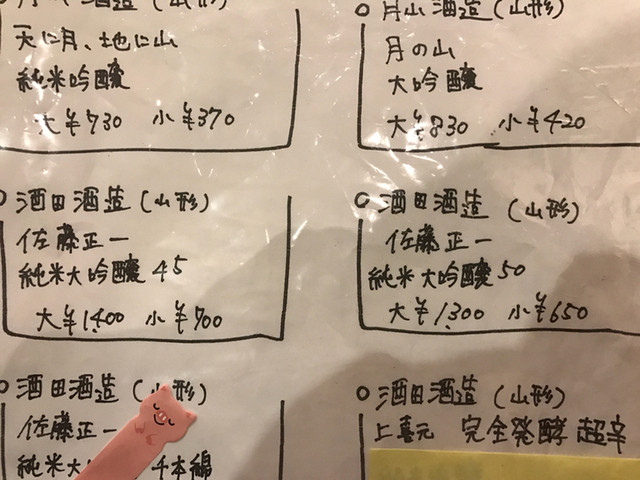 月山酒造(山形)
天に月、地に山
純米吟醸
大¥730 小¥370
月山酒造(山形)
月の山
大吟醸
大¥830 小¥420
酒田酒造(山形)
佐藤正一
純米大吟醸45
大¥1,400 小¥700
酒田酒造(山形)
佐藤正一
純米大吟醸50
大¥1,300 小¥650
酒田酒造(山形)
佐藤正一
純米大 千本錦
酒田酒造(山形)
上喜元 完全発酵 超辛